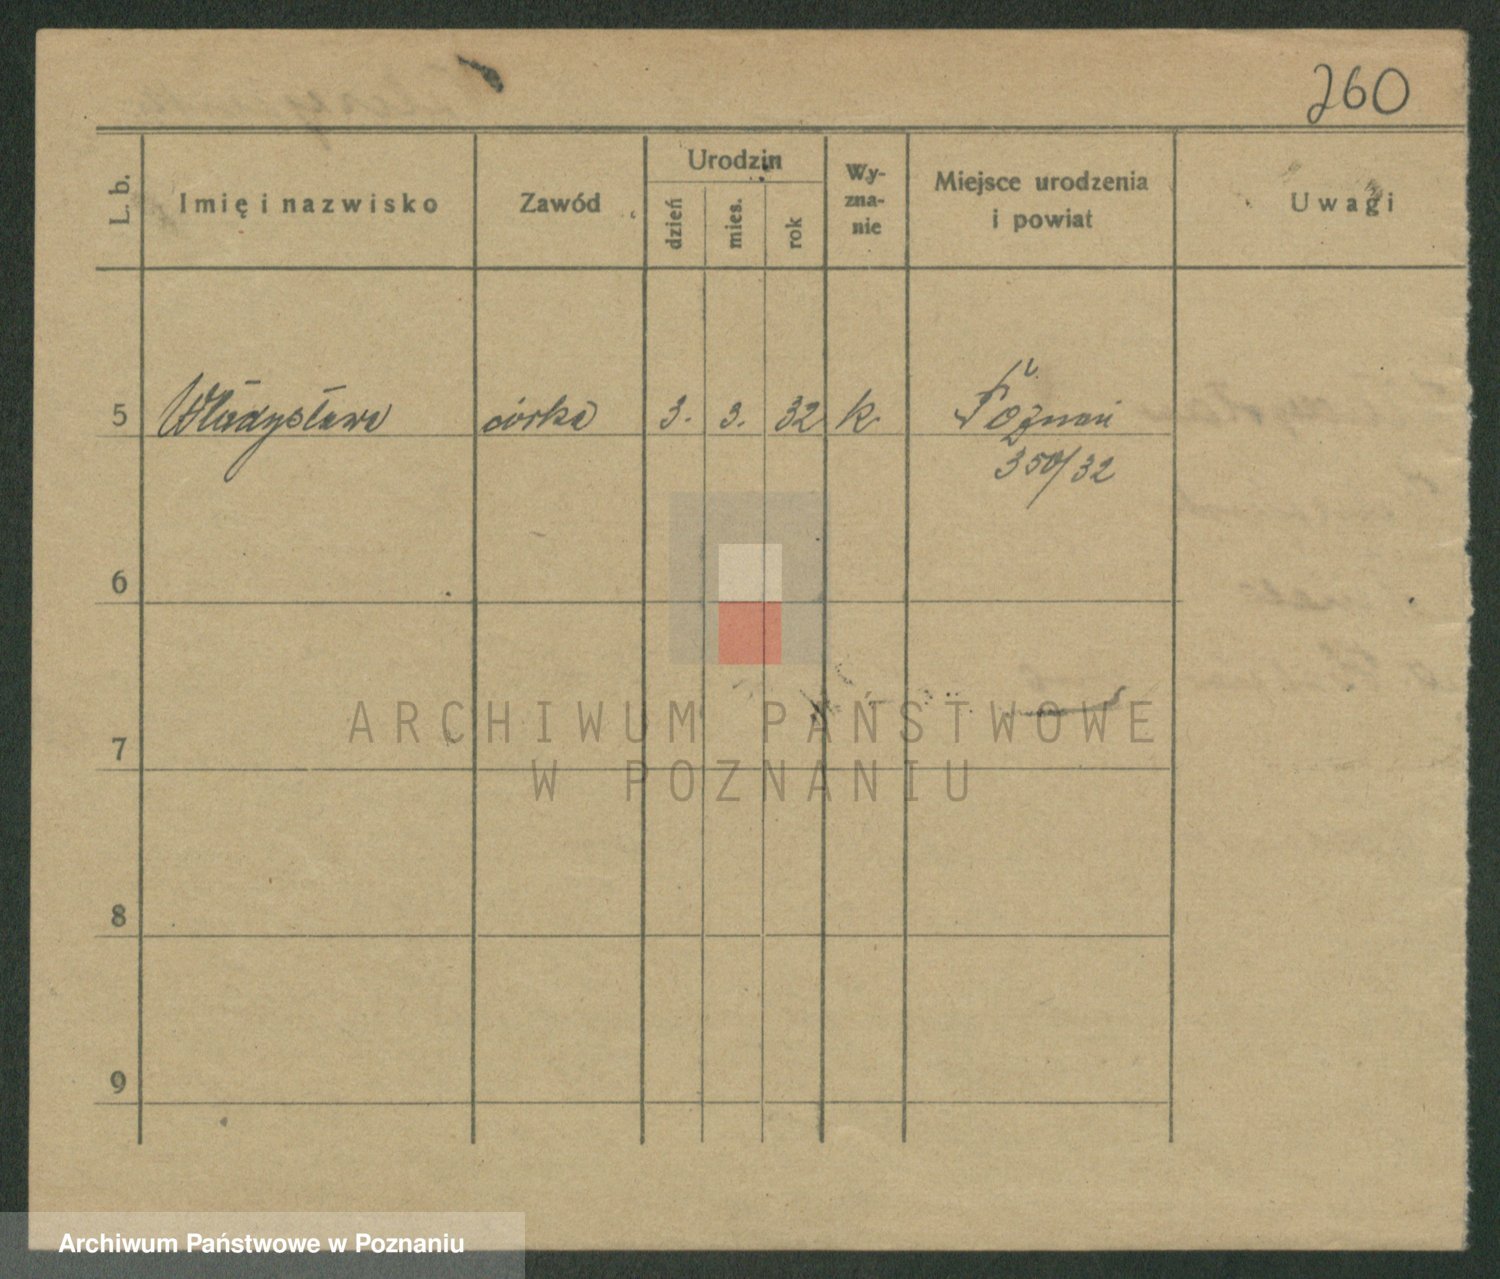 260
L. b.
Imię i nazwisko
Zawód
Urodzin
dzień
mies.
rok
Wy-
zna-
nie
Miejsce urodzenia
i powiat
Uwagi
5 Władysława córka 3. 3. 32 k. Poznań
350/32
6
7
8
9
ARCHIWUM PAŃSTWOWE
W POZNANIU
Archiwum Państwowe w Poznaniu